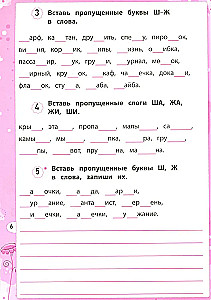 3 Вставь пропущенные буквы Ш-Ж
в слова.
__арф, ка__тан, дру__ить, спе__у, пиро__ок,
ви__ня, кор__ик, __ипы, __изнь, о__ибка,
пасса__ир, __ук, гру__и, __урнал, мо__ок,
__ирный, кру__ок, __каф, ча__ечка, дока__и,
фла__ок, сту__а, __аба, __айба.
4 Вставь пропущенные слоги ША, ЖА,
ЖИ, ШИ.
кры__, эта__, пропа__, малы__, са__,
камы__, мы__, __пка, __ра, гру__,
__пы, __вот, пру__на, ма__на.
5 Вставь пропущенные буквы Ш, Ж
в слова, запиши их.
__а__очки, __а__да, __ар__и,
__ур__ание, __анта__ист, __ер__ень,
__и__ечки, __а__ечки, __у__жание.
6